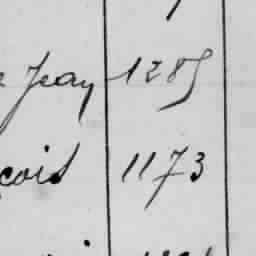 Jean 1285
çois 1173